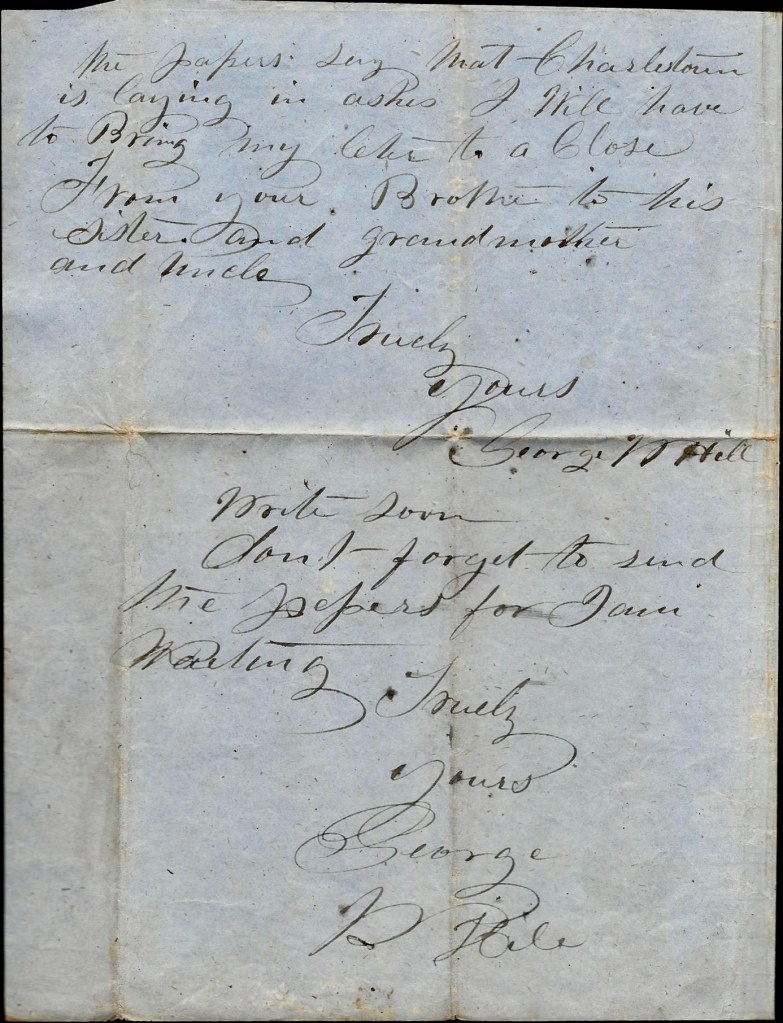 the papers say that Charlestown
is laying in ashes I Will have
to Bring my leter to a Close
From your Brother to his
sister and grandmother
and uncle
Truely
yours
George W Hill
Write soon
dont forget to send
the papers for I am
Waiting
Truely
yours
George
W Hill